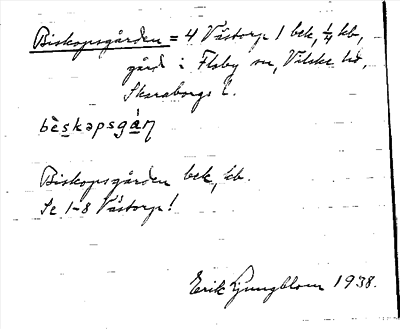 Biskopsgården = 4 Västorp 1 bek, 1/4 kb,
gård i Floby sn, Vilske hd,
Skaraborgs l.
bèskapsgán
Biskopsgården bek, kb.
Se 1-8 Västorp!
Erik Ljungblom 1938.